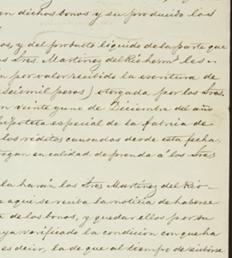 en dichos bonos y su producido los
os, y del producto líquido de la parte que
los Sres. Martinez del Rio herm.s les
por valor recibido la escritura de
seis mil pesos) otorgada por los Sres.
en veinte y uno de Diciembre del año
hipoteca especial de la fabrica de
los réditos causados desde esta fecha,
tregan en calidad de prenda á los Sres
la harán los Sres Martinez del Rio
aqui se reciba la noticia de haberse
de los bonos, y quedar ellos por su
ya verificado la condicion con que ha
es decir, la de que al tiempo de